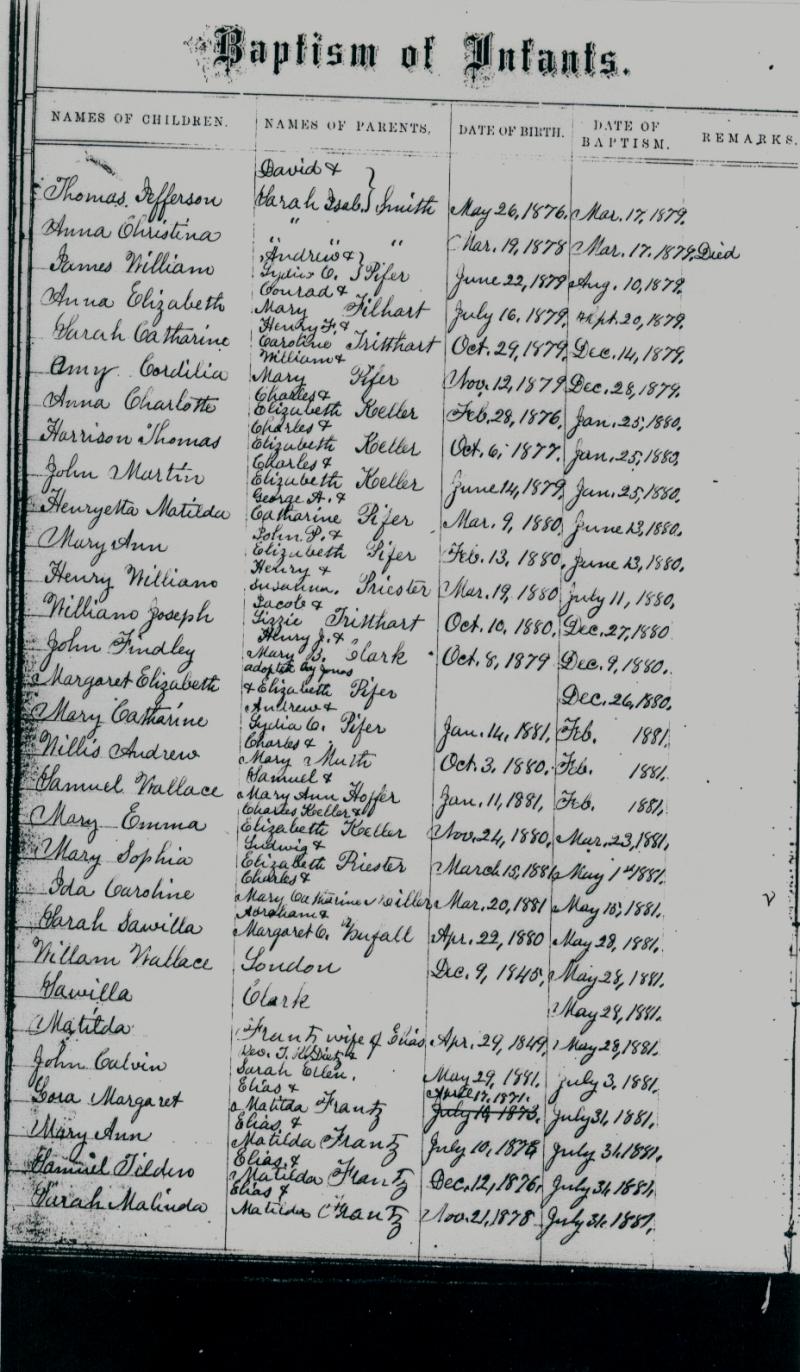 Baptism of Infants.
NAMES OF CHILDREN. NAMES OF PARENTS. DATE OF BIRTH. DATE OF BAPTISM. REMARKS.
David &
Thomas Jefferson Sarah Isab. } Smith May 26, 1876. Mar. 17, 1879.
Anna Christina " " " Mar. 19, 1878 Mar. 17, 1879. Died
Andrew &
James William Lydia C. } Pifer June 22, 1879 Aug. 10, 1879.
Conrad &
Anna Elizabeth Mary Filhart July 16, 1879, Sept. 20, 1879.
Henry F. &
Sarah Catharine Caroline Tritthart Oct. 29, 1879, Dec. 14, 1879.
William &
Amy Cordilia Mary Pifer Nov. 12, 1879 Dec. 28, 1879.
Charles &
Anna Charlotte Elizabeth Keller Feb. 28, 1876, Jan. 25, 1880.
Charles &
Harrison Thomas Elizabeth Keller Oct. 6, 1877. Jan. 25, 1880.
Charles &
John Martin Elizabeth Keller June 14, 1879 Jan. 25, 1880.
George A. &
Henryetta Matilda Catharine Pifer Mar. 9, 1880, June 13, 1880.
John P. &
Mary Ann Elizabeth Pifer Feb. 13, 1880, June 13, 1880.
Henry &
Henry William Susanna. Priester Mar. 19, 1880 July 11, 1880.
Jacob &
William Joseph Lizzie Tritthart Oct. 10, 1880, Dec. 27, 1880
Henry J. &
John Findley Mary B. Clark Oct. 8, 1879 Dec. 9, 1880.
adopted by Jonas
Margaret Elizabeth & Elizabeth Pifer Dec. 26, 1880.
Andrew &
Mary Catharine Lydia C. Pifer Jan. 14, 1881, Feb. 1881.
Charles &
Willis Andrew Mary Muth Oct. 3, 1880. Feb. 1881.
Samuel &
Samuel Wallace Mary Ann Hoffer Jan. 11, 1881, Feb. 1881.
Charles Keller &
Mary Emma Elizabeth Keller Nov. 24, 1880, Mar. 23, 1881.
Ludwig &
Mary Sophia Elizabeth Riester March 15, 1881, May 1st 1881.
Charles &
Ida Caroline Mary Catharine Miller Mar. 20, 1881 May 15, 1881.
Abraham &
Sarah Sawilla Margaret C. Apr. 22, 1880 May 28, 1881.
Willam Wallace London Dec. 9, 1845, May 28, 1881.
Sawilla Clark May 28, 1881.
Matilda Frantz wife of Elias Apr. 29, 1849, May 28, 1881.
Rev. T. R. Dietz &
John Calvin Sarah Ellen. May 29, 1881. July 3, 1881.
Elias & April 17, 1871.
Lora Margaret Matilda Frantz July 14 1873. July 31, 1881.
Elias, &
Mary Ann Matilda Frantz July 10, 1874 July 31, 1881.
Elias, &
Samuel Tilden Matilda Frantz Dec. 12, 1876, July 31, 1881,
Elias &
Sarah Malinda Matilda Frantz Nov. 21, 1878 July 31, 1881.